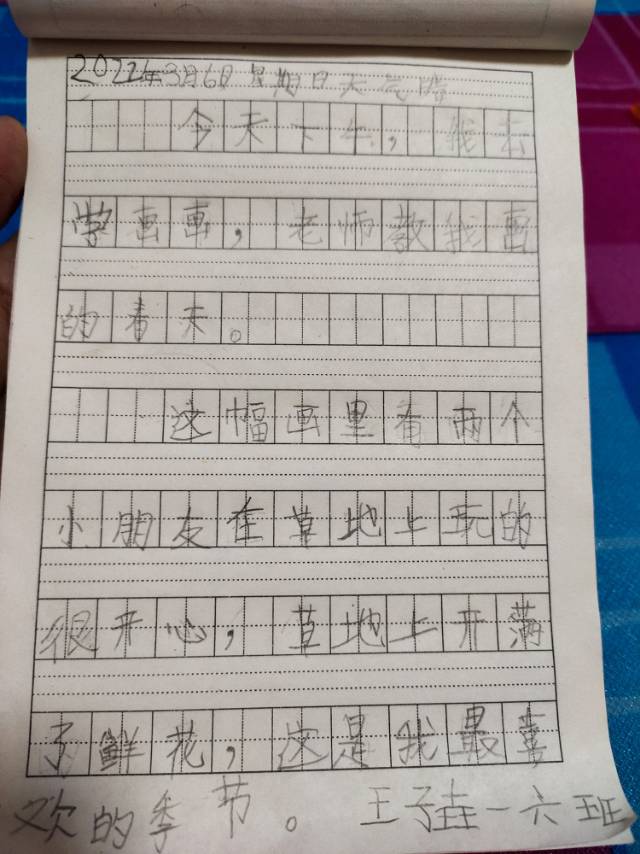 2022年3月6日星期日天气晴
今天下午,我去
学画画,老师教我画
的春天。
这幅画里有两个
小朋友在草地上玩的
很开心,草地上开满
了鲜花,这是我最喜
欢的季节。 王子垚一六班